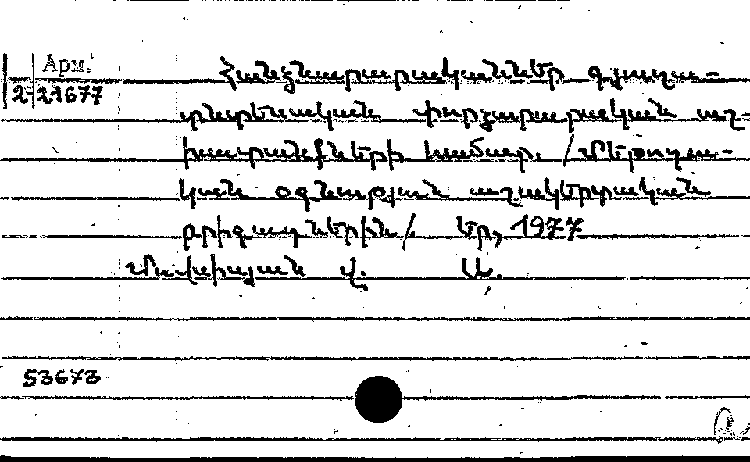 Арм.
2-21677
Հանձնարարականներ գյուղա-
տնտեսական փորձարարական աշ-
խատանքների համար. /Մեթոդա-
կան օգնություն աշակերտական
բրիգադներին/. Եր., 1977
Մովսիսյան Վ. Ա.
53673